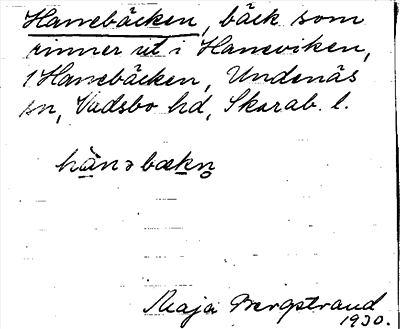 Hanebäcken, bäck som
rinner ut i Haneviken,
1 Hanebäcken, Undenäs
sn, Vadsbo hd, Skarab. l.
hànəbækn̥
Maja Bergstrand
1930.